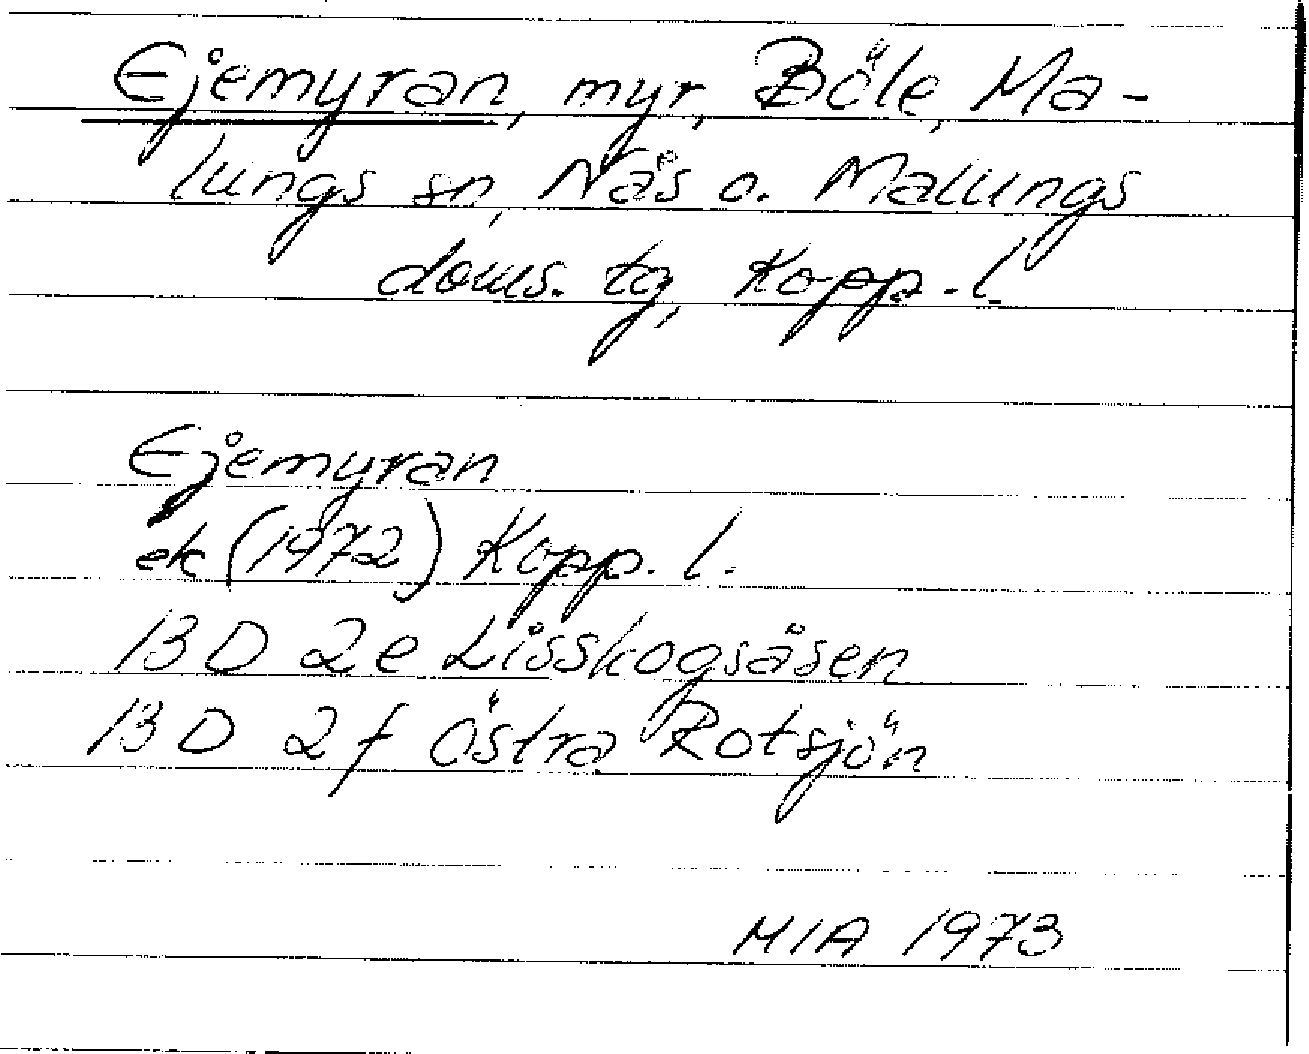 Ejemyran, myr, Böle, Ma-
lungs sn, Nås o. Malungs
doms. tg, Kopp.l.
Ejemyran
ek (1972) Kopp. l.
13 D 2e Lisskogsåsen
13 D 2f Östra Rotsjön
MIA 1973